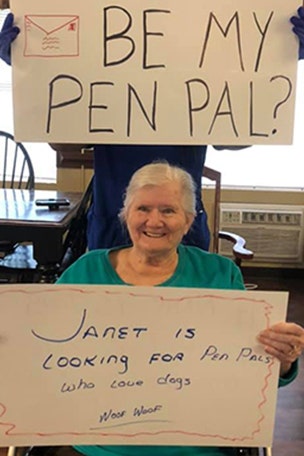 BE MY
PEN PAL?
JANET IS
LOOKING FOR PEN PALS
who love dogs
WOOF WOOF